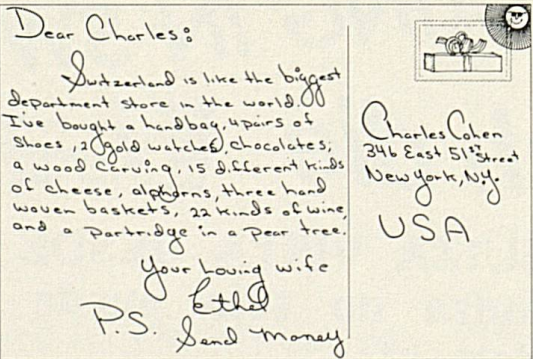 Dear Charles:
Switzerland is like the biggest
department store in the world.
I've bought a handbag, 4 pairs of
shoes, 2 gold watches, chocolates,
a wood carving, 15 different kinds
of cheese, alphorns, three hand
woven baskets, 22 kinds of wine,
and a partridge in a pear tree.
Your Loving wife
Ethel
P.S. Send money
Charles Cohen
346 East 51st Street
New York, N.Y.
USA